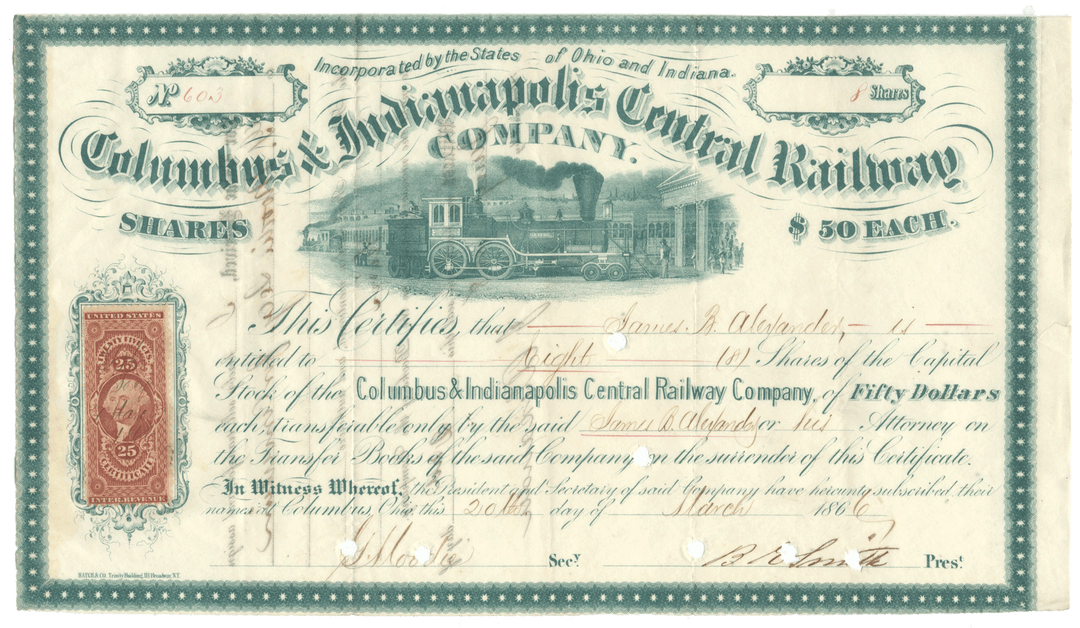 Incorporated by the States of Ohio and Indiana.
No 603
8 Shares
Columbus & Indianapolis Central Railway
COMPANY.
SHARES
$ 50 EACH.
This Certifies, that James B. Alexander is
entitled to Eight (8) Shares of the Capital
Stock of the Columbus & Indianapolis Central Railway Company, of Fifty Dollars
each, transferable only by the said James B. Alexander or his Attorney on
the Transfer Books of the said Company on the surrender of this Certificate.
In Witness Whereof, the President and Secretary of said Company have hereunto subscribed their
names at Columbus, Ohio, this 20th day of March 1866
Secy.
B E Smith Prest.
UNITED STATES
TWENTY FIVE CTS
25
25
CERTIFICATE
INTER. REVENUE
HATCH & CO. Trinity Building, 111 Broadway, N.Y.